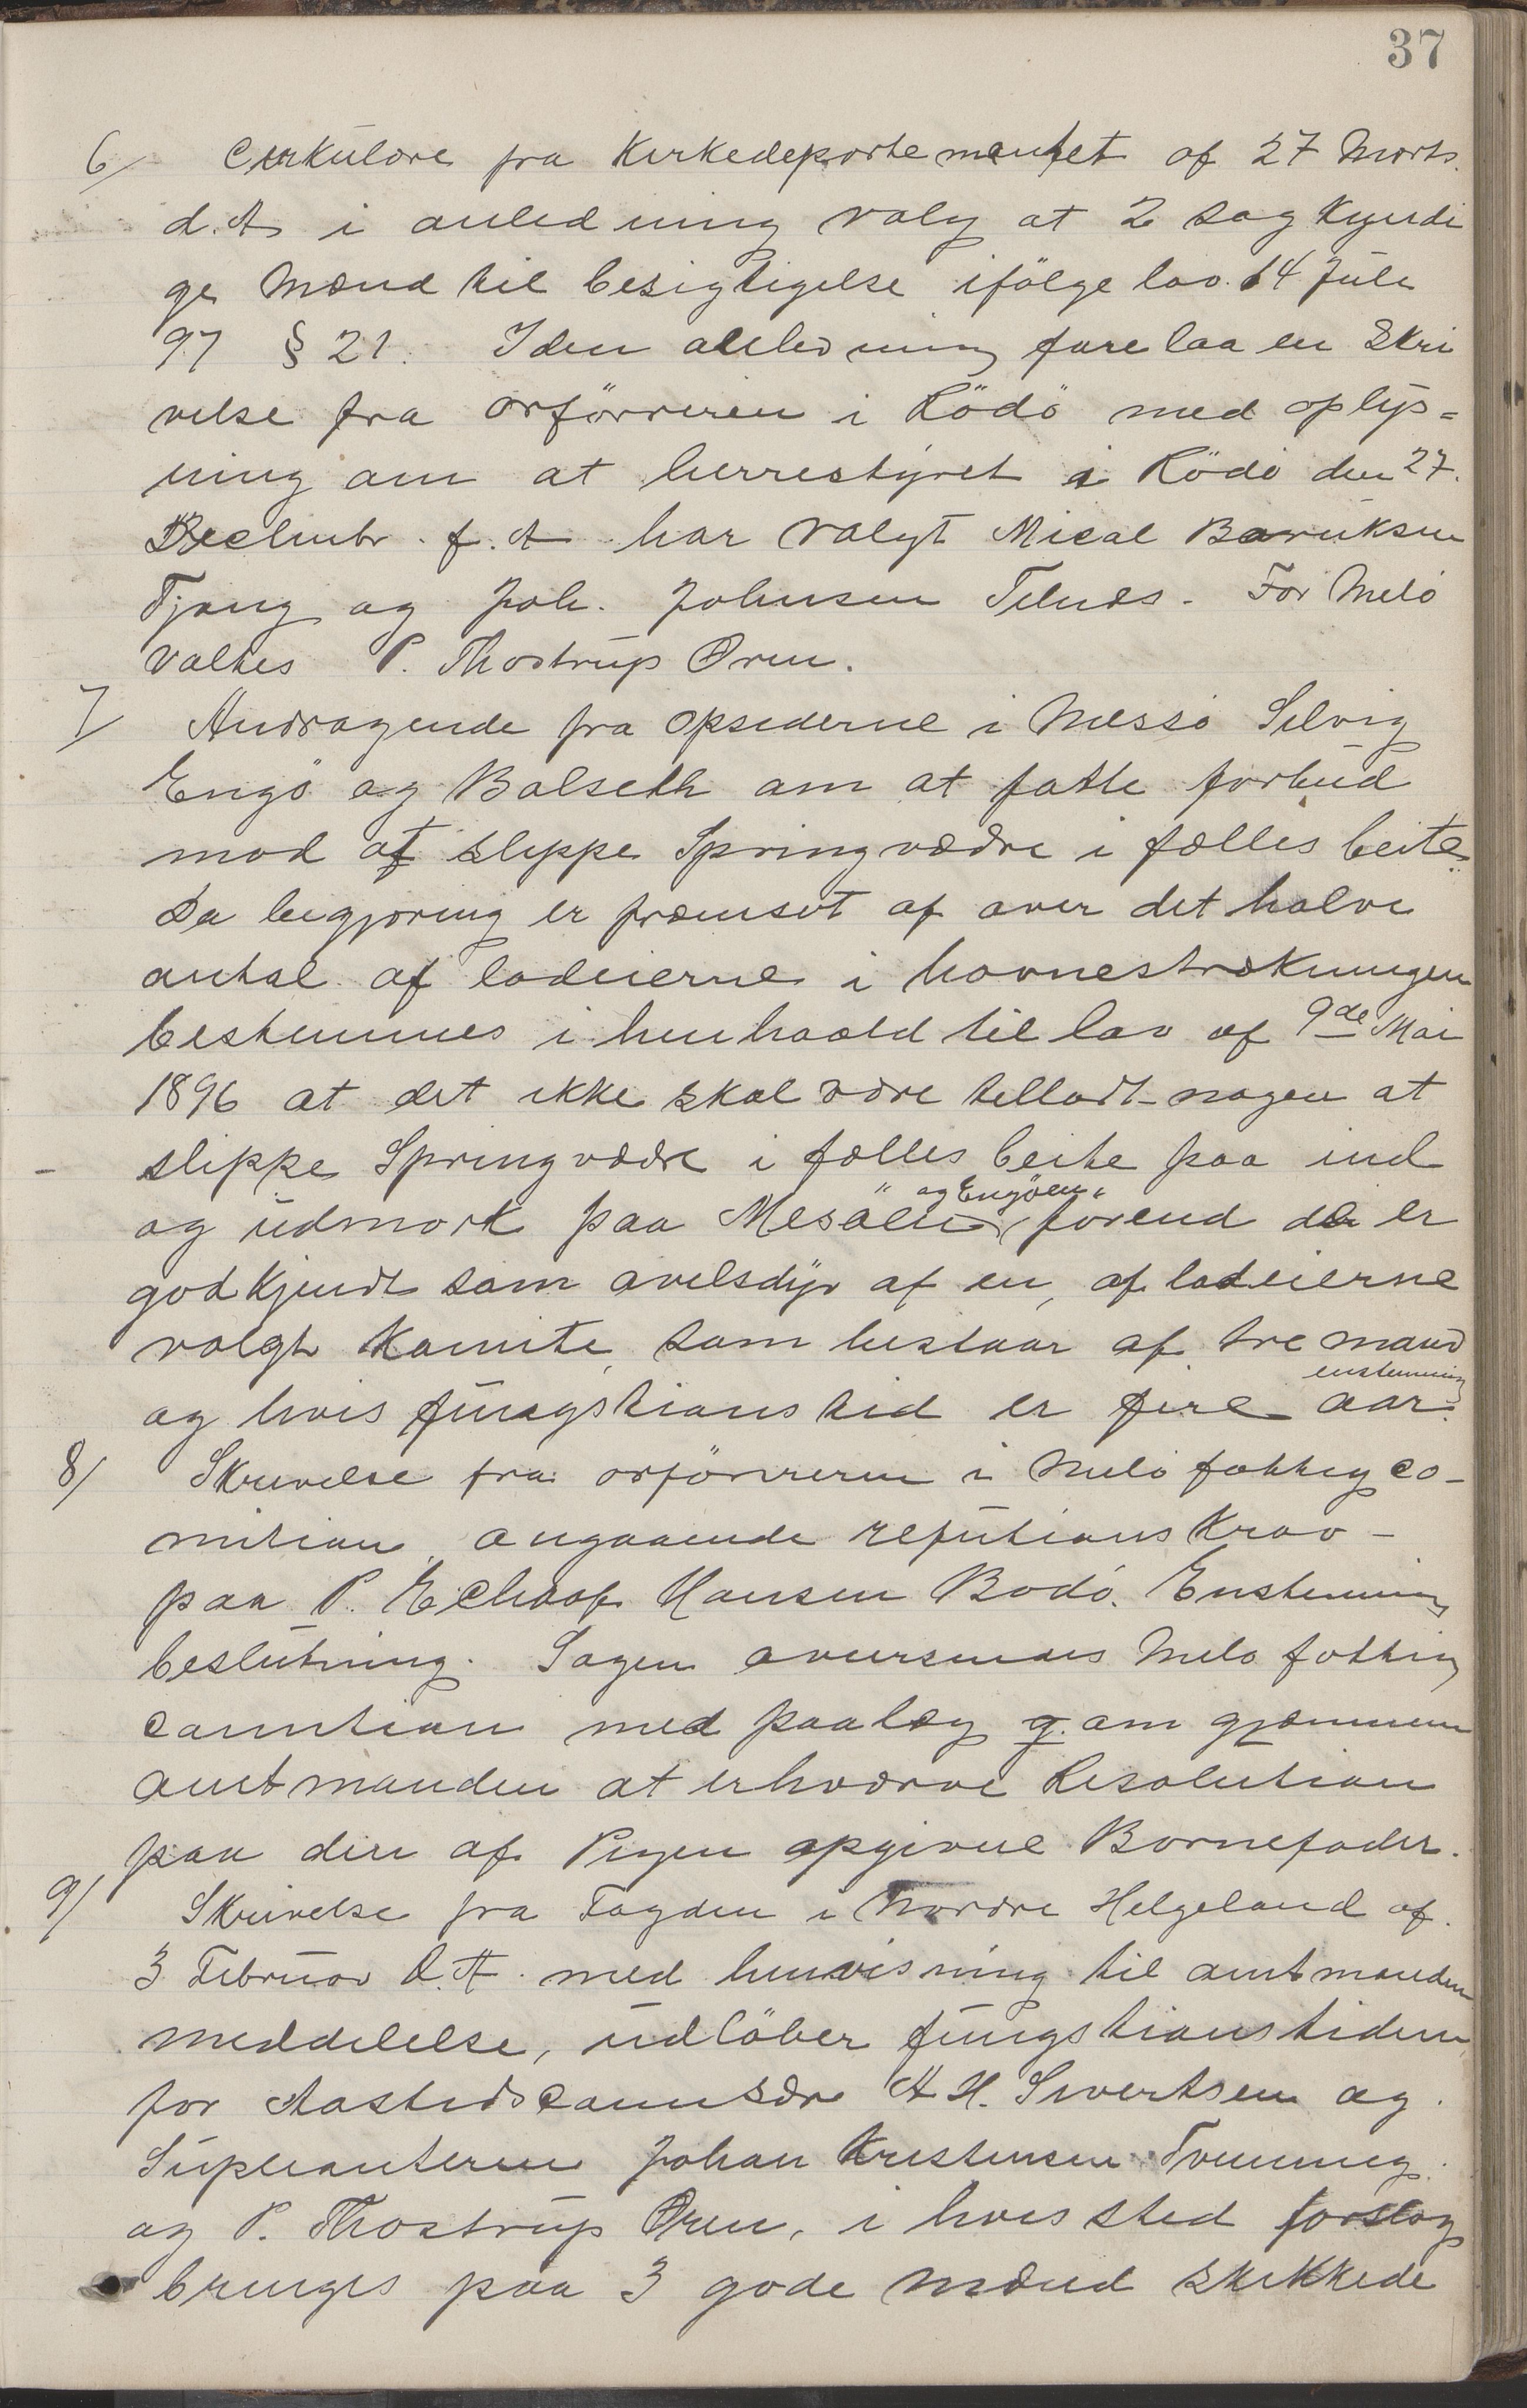 37
6/ Cirkulære fra Kirkedepartementet af 27 Marts.
d. A i anledning valg at 2 sagkyndi
ge Mænd til besigtigelse ifölge lov. 14 Juli
97 § 21. I den anledning forelaa en Skri
velse fra orförreren i Rödö med oplys=
ning om at herrestyret i Rödö den 27.
Decembr. f. A har valgt Mical Baruksen
Tjong og Joh. Johnsen Telnes. For Melö
valtes P. Thostrup Ørnes.
7/ Andragende fra Opsiderne i Messö Selvig
Engö og Bolseth om at fatte forbud
mod at sleppe Springvædre i fælles beite.
Da begjæring er fræmsat af over det halve
antal af lodeierne i havnestrækningen
bestemmes i henhaald til lov af 9de Mai
1896 at det ikke skal være tilladt nogen at
slippe Springvædre i fælles beite paa ind
og udmark paa Mesöen "og Engöen" forend de er
godkjendt som avelsdyr af en, af lodeierne
valgt Komite, som bestaar af tre mand
og hvis fungstionstid er fire aar. enstemmig
8/ Skrivelse fra orförreren i Melö fattigco-
mition angaaende refutions Krav-
paa P. Hansen Bodö. Enstemmig
beslutning. Sagen aversendes Melö fattig
commition med paalæg g. om gjennem
amtmanden at erhværve Resolution
paa den af Pigen opgivne Barnefader.
9/ Skrivelse fra Fogden i Nordre Helgeland af.
3 Februar d. A. med henvisning til amtmanden
meddelelse, udlöber fungstionstiden
for Aastedscommisær A H. Sivertsen og
Supleanterne Johan Kristensen Tvenning.
og P. Thostrup Ørnes, i hvis sted forslag
bringes paa 3 gode mænd skikkede